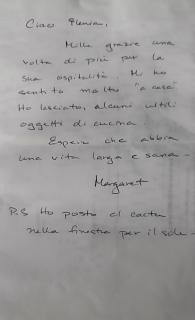 Ciao Plenia,
Mille grazie una
volta di più per la
sua ospitalità. Mi ho
sentito molto "a casa"
Ho lasciato, alcuni utili
oggetti di cucina.
Espero che abbia
una vita larga e sana -
Margaret
P.S Ho posto el cactu
nella finestra per il sole -